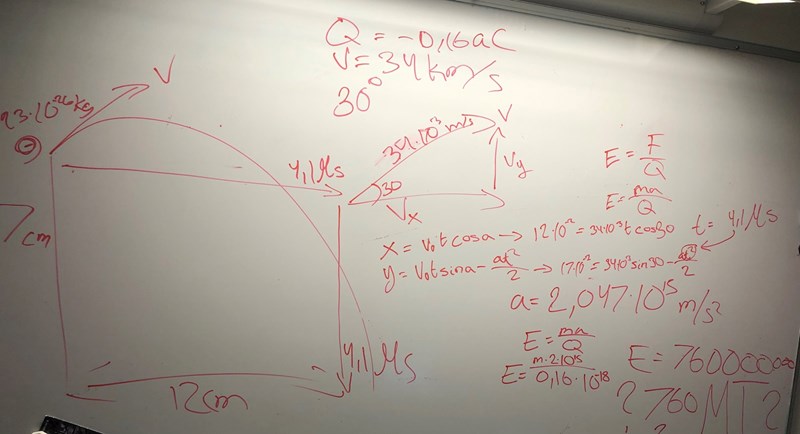 Q = -0,16aC
V = 34km/s
30°
V
23·10⁻²⁶kg
4,1μs
7cm
12cm
4,1μs
34·10³ m/s
V
Vy
30
Vx
E = F/Q
E = ma/Q
x = V₀tcosa → 12·10⁻² = 34·10³tcos30 t = 4,1μs
y = V₀tsina - at²/2 → 17·10⁻² = 34·10³sin30 - at²/2
a = 2,047·10¹⁵ m/s²
E = ma/Q
E = m·2·10¹⁵/0,16·10⁻¹⁸
E = 760000000
? 760MT?